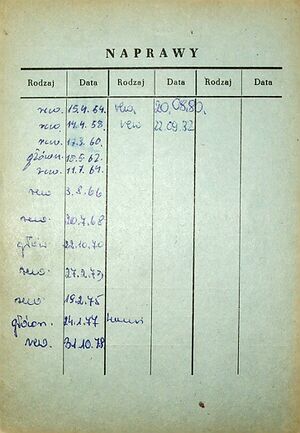 NAPRAWY
Rodzaj Data Rodzaj Data Rodzaj Data
rew. 15.4.54. rew. 20.08.80.
rew. 14.4.58. rew 22.09.82
rew. 17.3.60.
główn. 18.5.62.
rew. 11.7.64.
rew 3.8.66
rew. 20.7.68
głów 22.10.70
rew. 27.2.73
rew 19.2.75
główn. 24.1.77
rew. 31.10.78